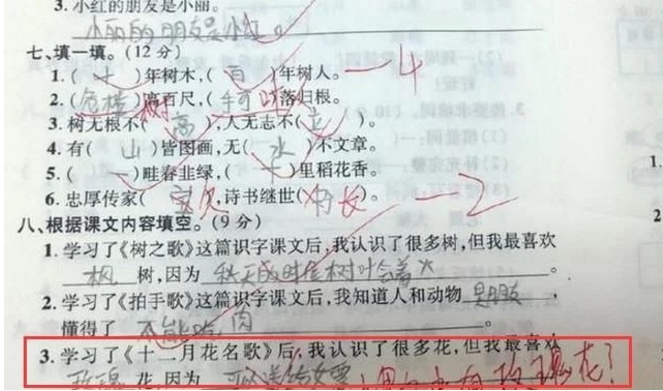 3. 小红的朋友是小丽。
小丽的朋友是小红。
七、填一填。(12分)
1. (十)年树木,(百)年树人。 -4
2. (危楼)高百尺,( 树叶 )落归根。
3. 树无根不(高),人无志不(立)。
4. 有(山)皆图画,无(水)不文章。
5. (一)畦春韭绿,(十)里稻花香。
6. 忠厚传家(宝久),诗书继世(长)。 -2
八、根据课文内容填空。(9分)
1. 学习了《树之歌》这篇识字课文后,我认识了很多树,但我最喜欢
枫 树,因为 秋天的时候树叶会着火 。
2. 学习了《拍手歌》这篇识字课文后,我知道人和动物 是朋友 ,
懂得了 不能吃肉 。
3. 学习了《十二月花名歌》后,我认识了很多花,但我最喜欢
玫瑰 花,因为 可以送给女